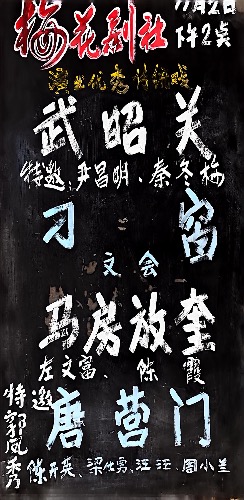 梅花剧社
11月2日
下午2点
演出优秀传统戏
武昭关
特邀、尹昌明、秦冬梅
刁窗
文会
马房放奎
左文富、陈霞
唐营门
特邀郭凤秀
陈开英、梁仕勇、汪汪、周小兰